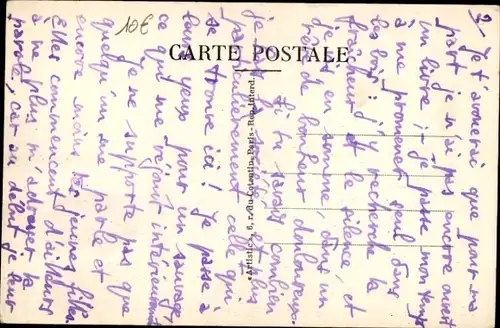 10€
CARTE POSTALE
«Artistic», 6, r. du Cotentin, Paris - Rep. interd.
2/ Je t'avouerai que pour ma
part je n'ai pas encore ouvert
un livre : je passe mon temps
à me promener seul dans
les bois ; j'y recherche la
fraîcheur et le silence, et
je suis en somme, dans un
état de bonheur douloureux.
Si tu savais combien
je et plus
particulièrement celle qui
se trouve ici ! Je passe à
leurs yeux pour un sauvage
ce qui me réjouit intérieurement
Je ne supporte pas que
quelqu'un me parle et
encore moins les jeunes filles.
Elles commencent d'ailleurs
à ne plus m'adresser la
parole, car au début je leur